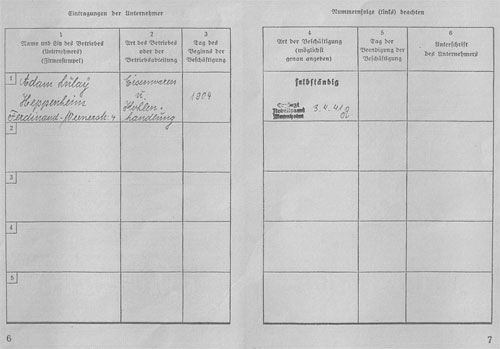 Eintragungen der Unternehmer
1
Name und Sitz des Betriebes
(Unternehmers)
(Firmenstempel)
2
Art des Betriebes
oder der
Betriebsabteilung
3
Tag des
Beginns der
Beschäftigung
1
Adam
Heppenheim
Ferdinand-Wernerstr. 4
Eisenwaren
u.
Kohlen-
handlung
1904
2
3
4
5
6
Nummernfolge (links) beachten
4
Art der Beschäftigung
(möglichst
genau angeben)
5
Tag der
Beendigung der
Beschäftigung
6
Unterschrift
des Unternehmers
selbständig
3.4.41
7